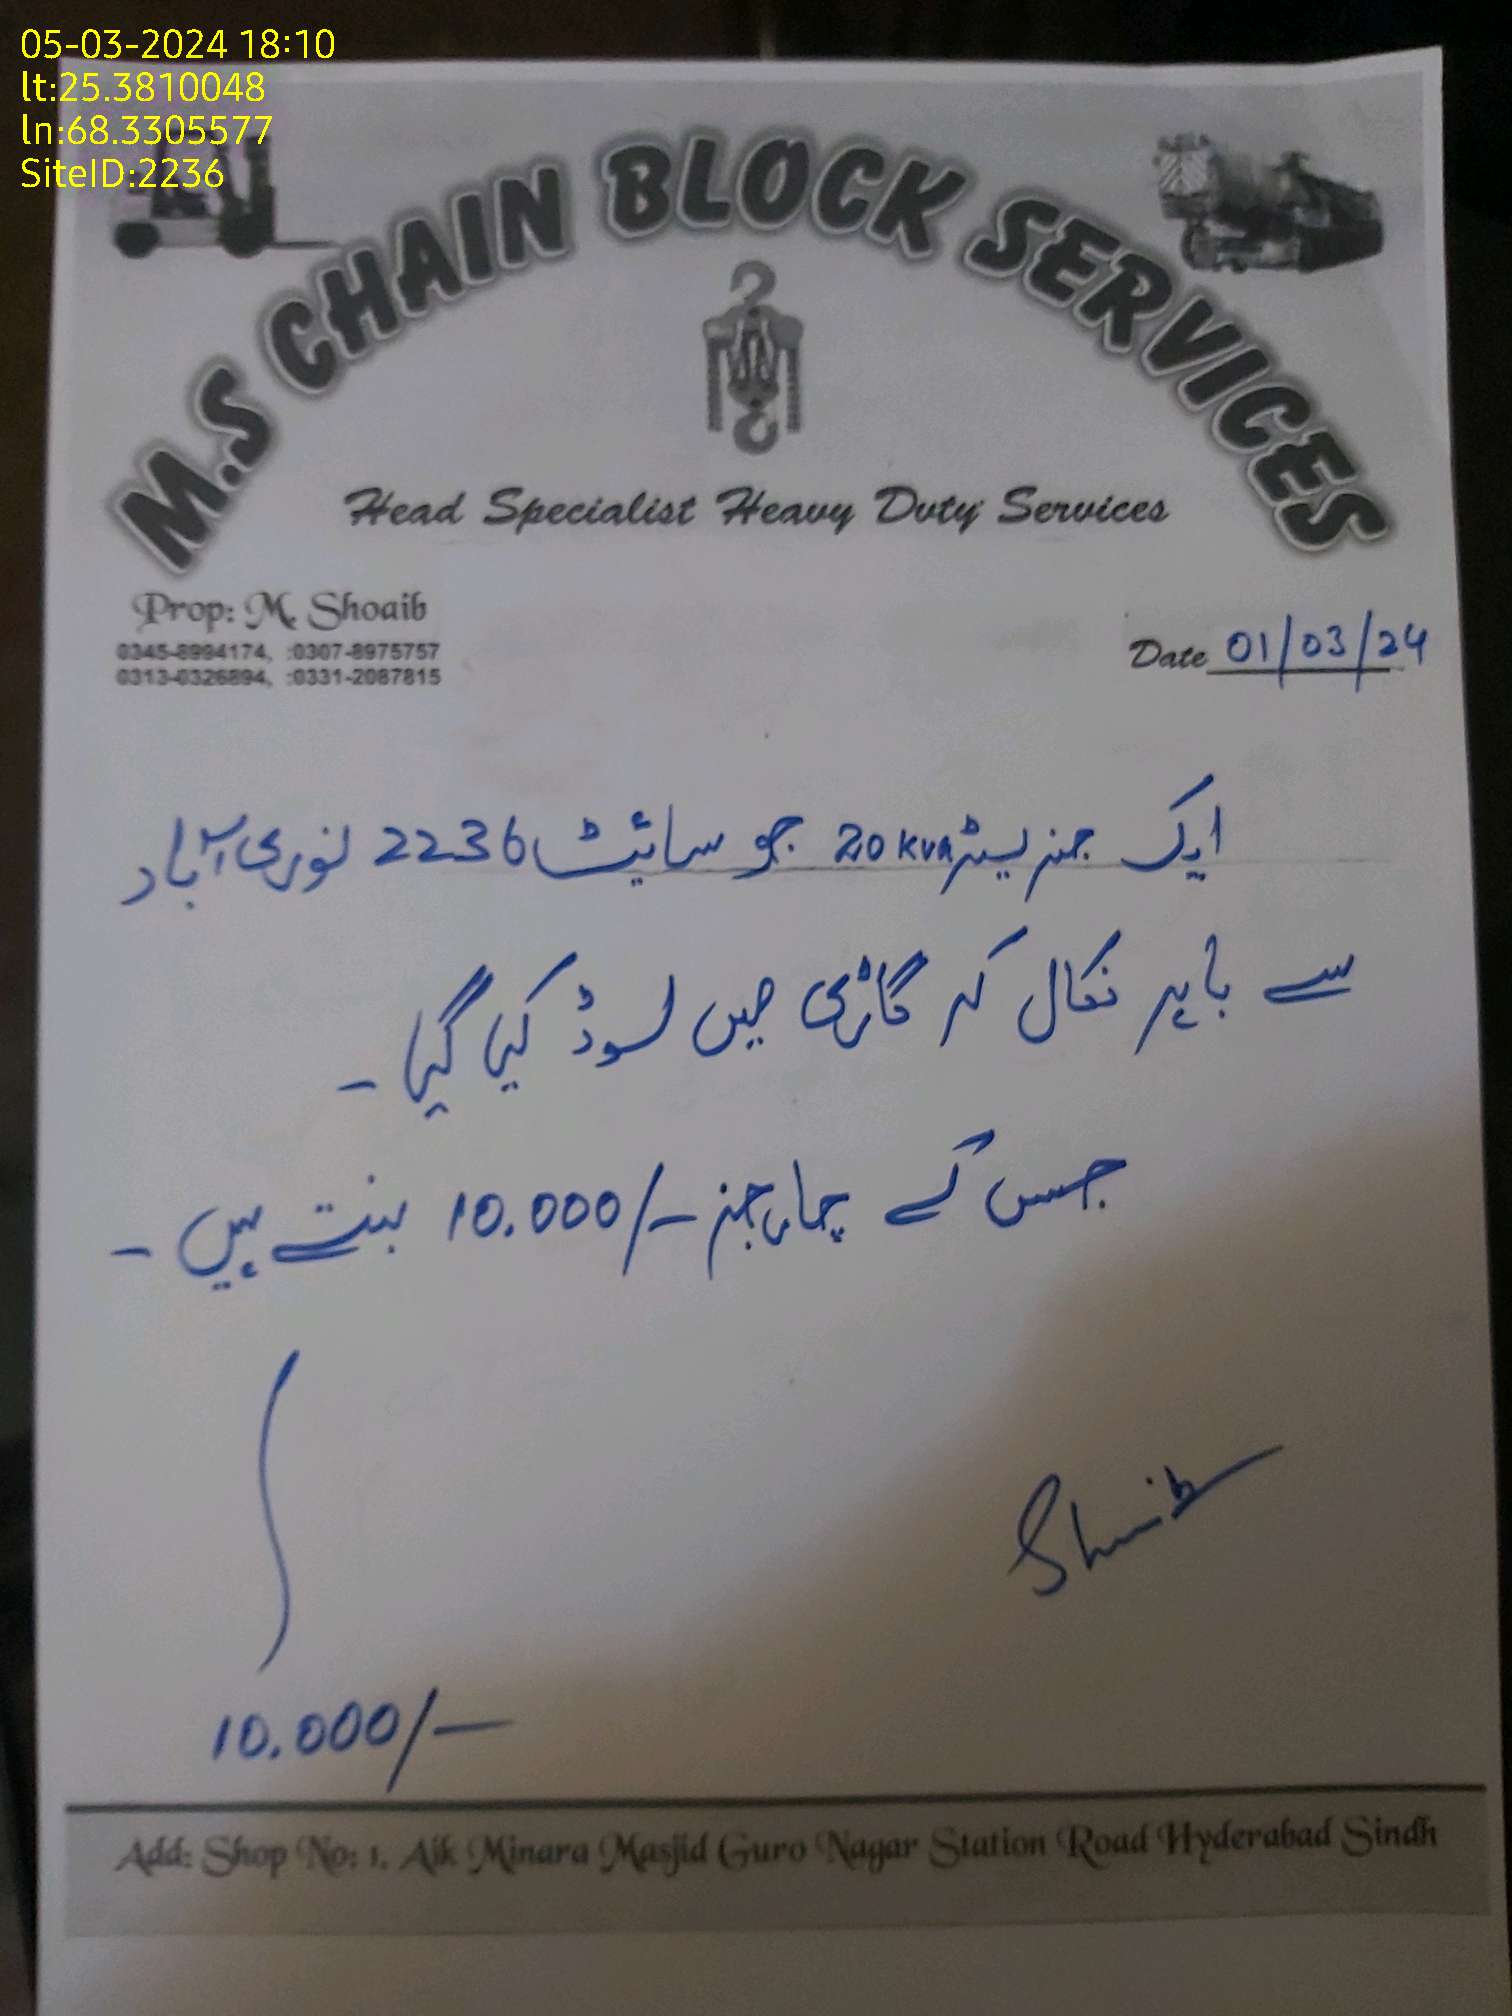 05-03-2024 18:10
lt:25.3810048
ln:68.3305577
SiteID:2236
M.S CHAIN BLOCK SERVICES
Head Specialist Heavy Duty Services
Prop: M. Shoaib
0345-8994174, :0307-8975757
0313-0326894, :0331-2087815
Date 01/03/24
ایک جنریٹر 20 kva جو سائیٹ 2236 نوری آباد
سے باہر نکال کر گاڑی میں لوڈ کیا گیا -
جس کے چارجز 10.000/- بنتے ہیں -
Shoaib
10.000/-
Add: Shop No: 1, Aik Minara Masjid Guro Nagar Station Road Hyderabad Sindh